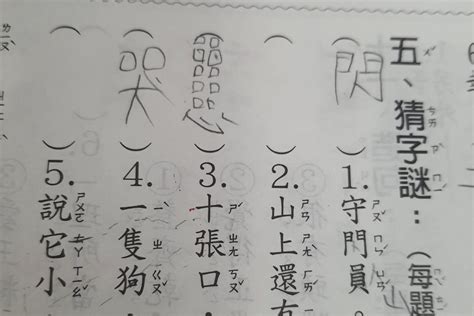 五、猜字謎：（每題
（閃）1.守門員
（）2.山上還有
（）3.十張口
（哭）4.一隻狗
（）5.說它小